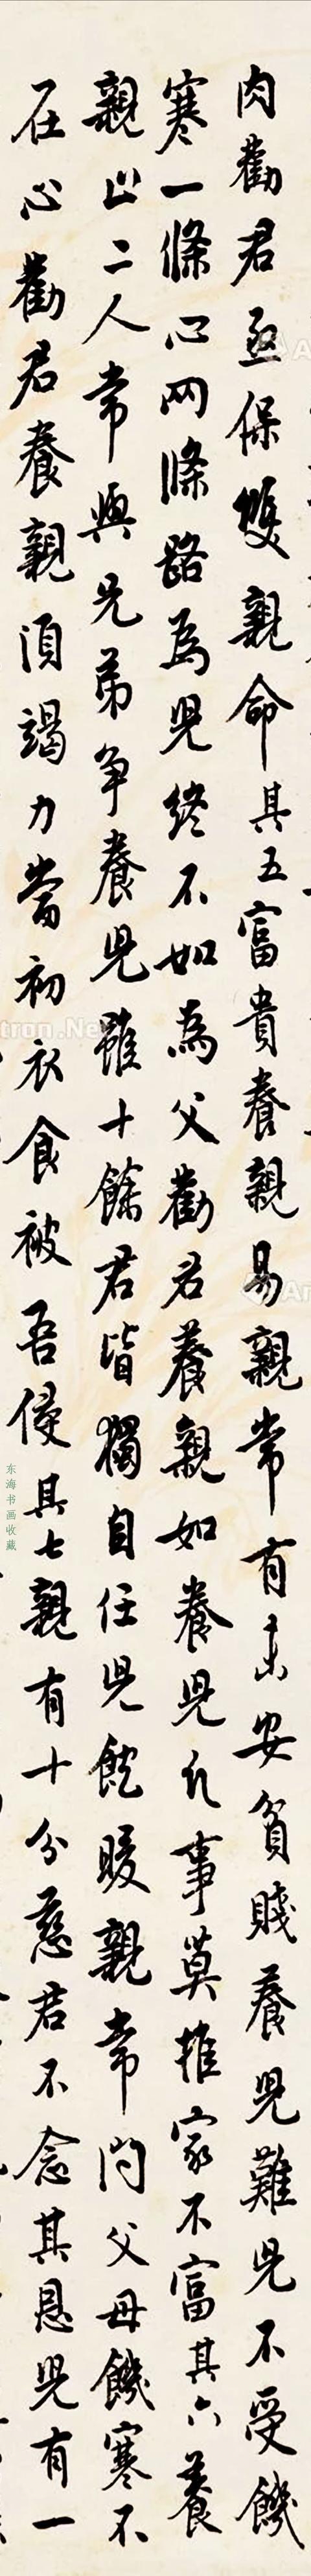 肉勸君亟保雙親命其五富貴養親易親常有未安貧賤養兒難兒不受饑
寒一條心兩條路為兒終不如為父勸君養親如養兒凡事莫推家不富其六養
親止二人常與兄弟爭養兒雖十餘君皆獨自任兒飽暖親常問父母饑寒不
在心勸君養親須竭力當初衣食被吾侵其七親有十分慈君不念其恩兒有一
东海书画收藏